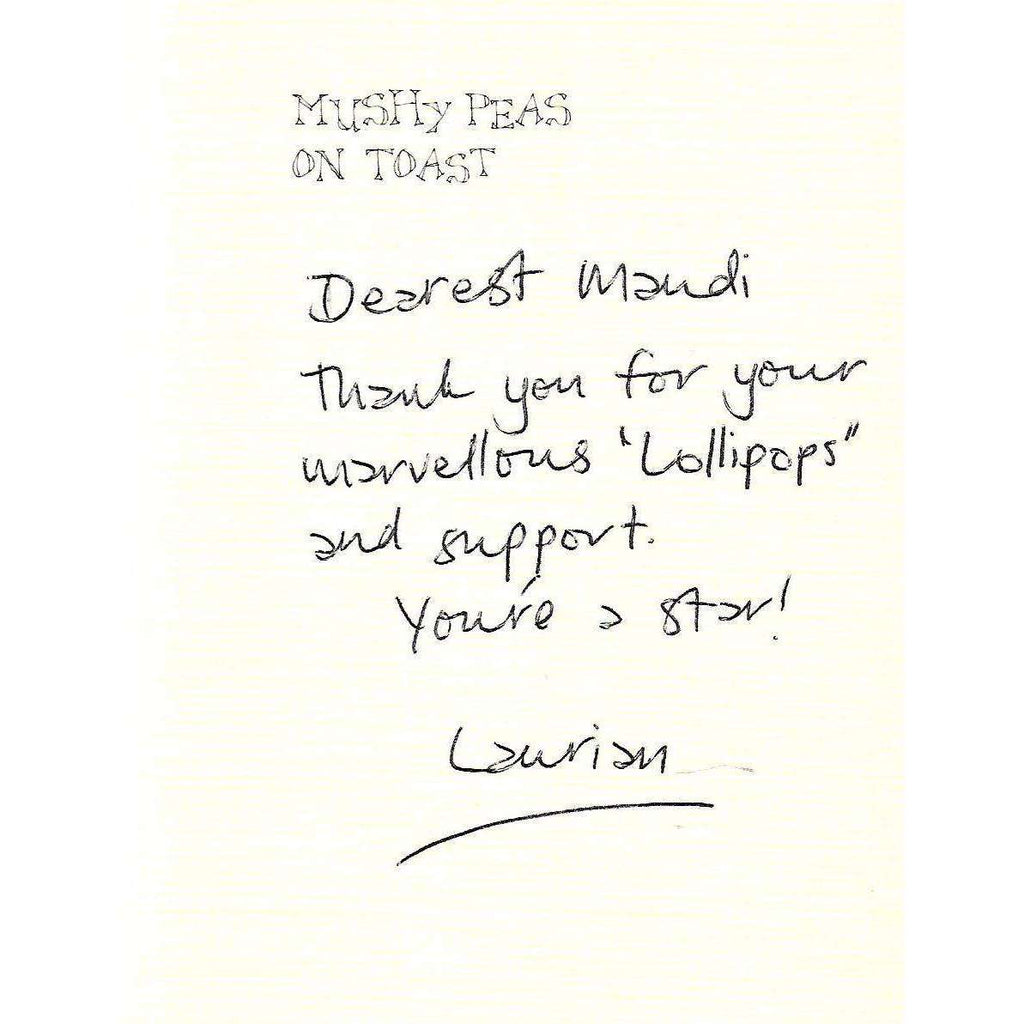 MUSHY PEAS
ON TOAST
Dearest Mandi
Thank you for your
marvellous "Lollipops"
and support.
You're a star!
Laurian